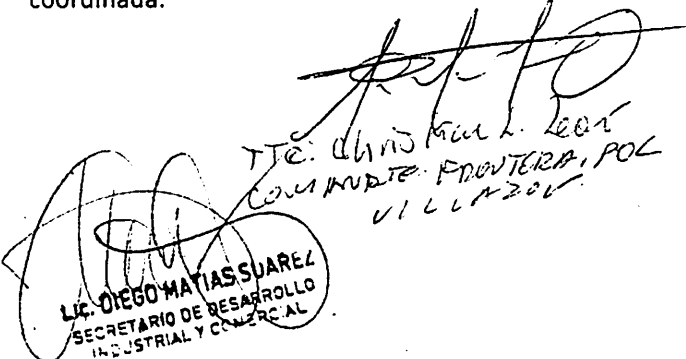 coordinada.
TTE. Christian L. León
COMANDTE FRONTERA, POL
VILLAZON
LIC. DIEGO MATIAS SUAREZ
SECRETARIO DE DESARROLLO
INDUSTRIAL Y COMERCIAL